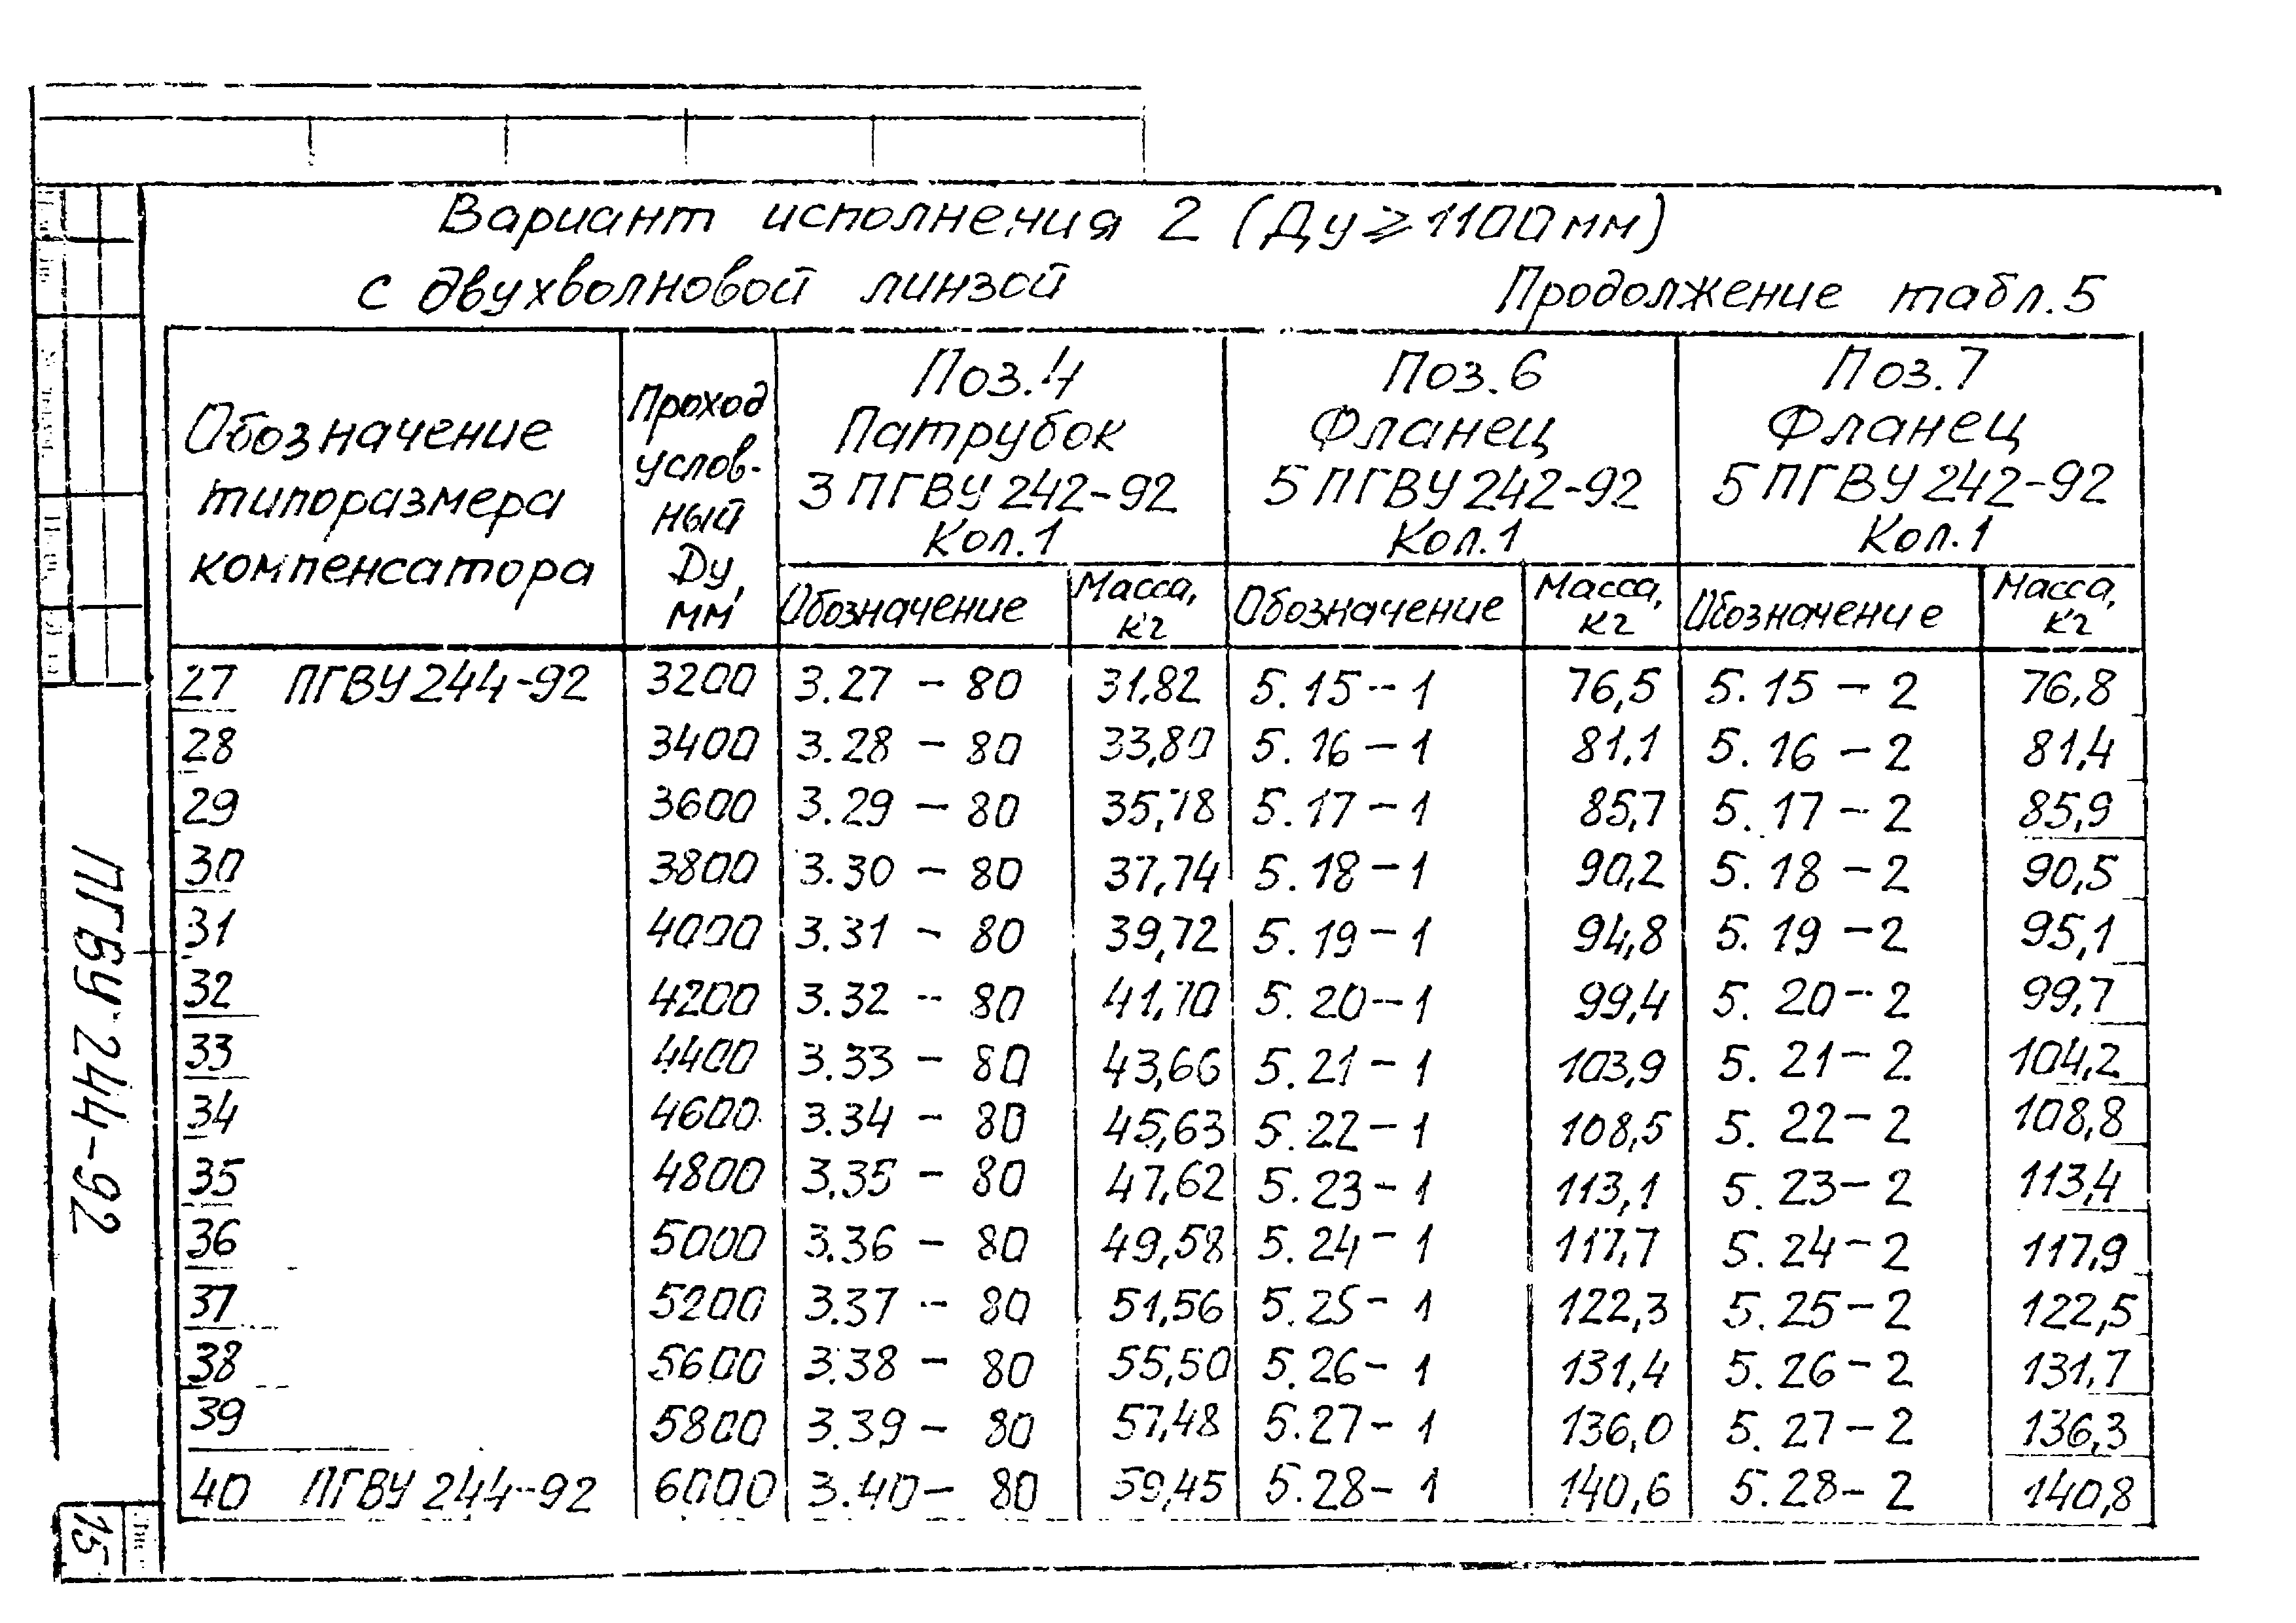 Вариант исполнения 2 (Ду⩾1100мм)
с двухволновой линзой Продолжение табл.5
Обозначение типоразмера компенсатора
Проход услов-ный Ду, мм
Поз.4 Патрубок 3 ПГВУ 242-92 Кол.1
Поз.6 Фланец 5 ПГВУ 242-92 Кол.1
Поз.7 Фланец 5 ПГВУ 242-92 Кол.1
Обозначение Масса, кг Обозначение Масса, кг Обозначение Масса, кг
27 ПГВУ 244-92 3200 3.27 - 80 31,82 5.15-1 76,5 5.15-2 76,8
28 3400 3.28 - 80 33,80 5.16-1 81,1 5.16-2 81,4
29 3600 3.29 - 80 35,78 5.17-1 85,7 5.17-2 85,9
30 3800 3.30 - 80 37,74 5.18-1 90,2 5.18-2 90,5
31 4000 3.31 - 80 39,72 5.19-1 94,8 5.19-2 95,1
32 4200 3.32 - 80 41,70 5.20-1 99,4 5.20-2 99,7
33 4400 3.33 - 80 43,66 5.21-1 103,9 5.21-2 104,2
34 4600 3.34 - 80 45,63 5.22-1 108,5 5.22-2 108,8
35 4800 3.35 - 80 47,62 5.23-1 113,1 5.23-2 113,4
36 5000 3.36 - 80 49,58 5.24-1 117,7 5.24-2 117,9
37 5200 3.37 - 80 51,56 5.25-1 122,3 5.25-2 122,5
38 5600 3.38 - 80 55,50 5.26-1 131,4 5.26-2 131,7
39 5800 3.39 - 80 57,48 5.27-1 136,0 5.27-2 136,3
40 ПГВУ 244-92 6000 3.40 - 80 59,45 5.28-1 140,6 5.28-2 140,8
ПГВУ 244-92
15